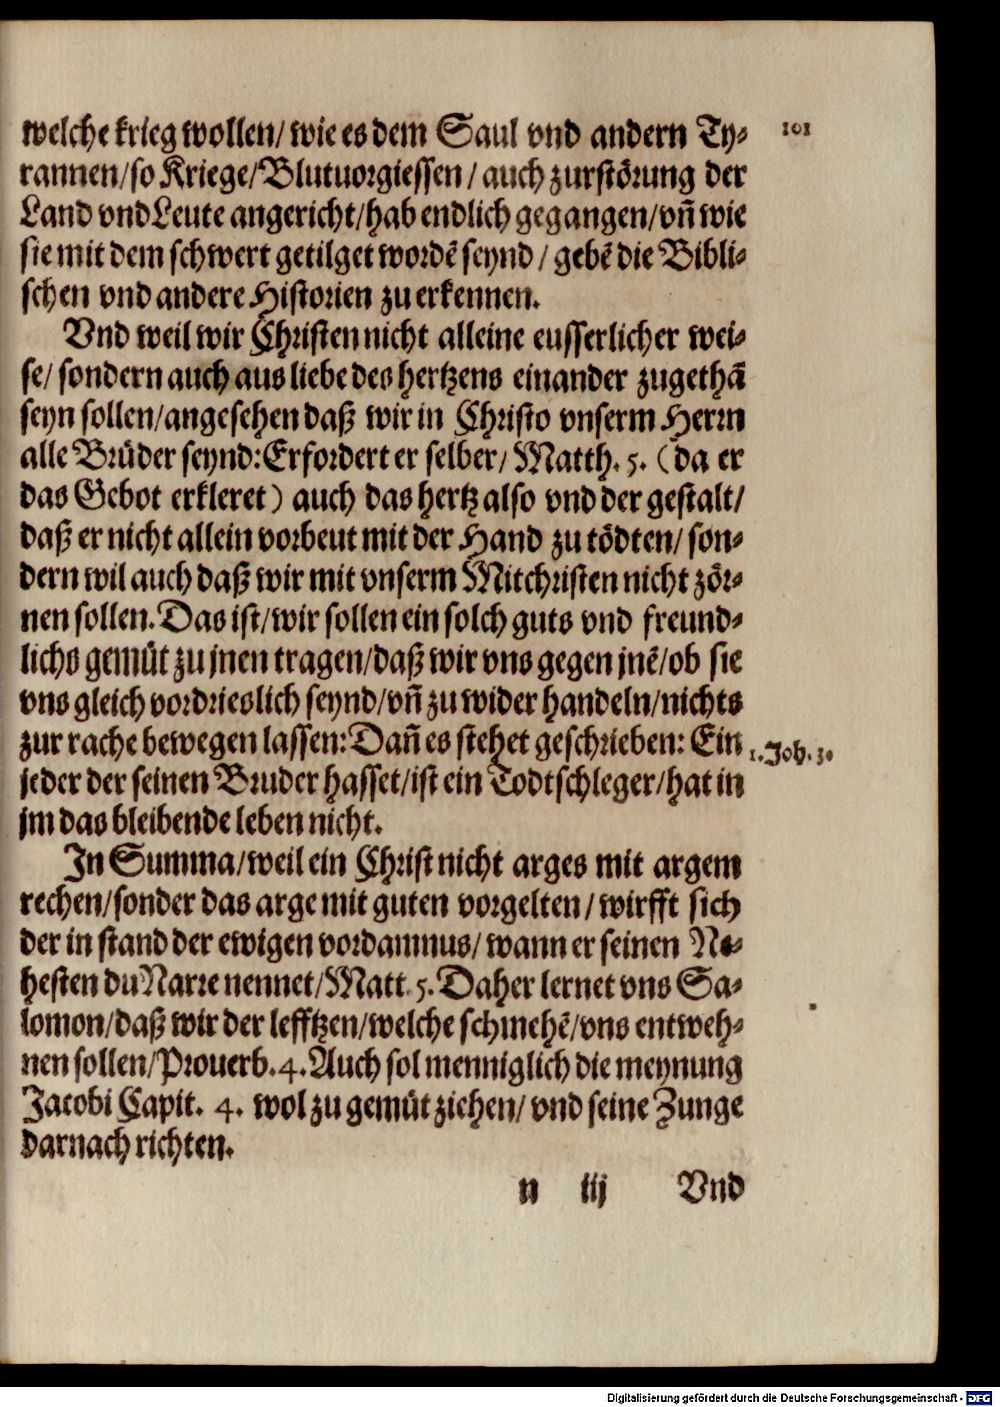 101
welche krieg wollen/ wie es dem Saul vnd andern Ty-
rannen/so Kriege/Blutuorgiessen / auch zurstörung der
Land vnd Leute angericht/hab endlich gegangen/vñ wie
sie mit dem schwert getilget wordẽ seynd / gebẽ die Bibli-
schen vnd andere Historien zu erkennen.
Vnd weil wir Christen nicht alleine eusserlicher wei-
se/ sondern auch aus liebe des hertzens einander zugethã
seyn sollen/angesehen daß wir in Christo vnserm Herrn
alle Brüder seynd:Erfordert er selber/ Matth. 5. (da er
das Gebot erkleret) auch das hertz also vnd der gestalt/
daß er nicht allein vorbeut mit der Hand zu tödten/ son-
dern wil auch daß wir mit vnserm Mitchristen nicht zör-
nen sollen. Das ist/wir sollen ein solch guts vnd freund-
lichs gemüt zu jnen tragen/daß wir vns gegen jnẽ/ob sie
vns gleich vordrieslich seynd/vñ zu wider handeln/nichts
zur rache bewegen lassen:Dañ es stehet geschrieben: Ein
1. Joh. 3.
jeder der seinen Bruder hasset/ist ein Todtschleger/hat in
jm das bleibende leben nicht.
In Summa/weil ein Christ nicht arges mit argem
rechen/sonder das arge mit guten vorgelten/ wirfft sich
der in stand der ewigen vordamnus/ wann er seinen Ne-
hesten du Narre nennet/Matt. 5. Daher lernet vns Sa-
lomon/daß wir der lefftzen/welche schmehẽ/vns entweh-
nen sollen/Prouerb. 4. Auch sol menniglich die meynung
Jacobi Capit. 4. wol zu gemüt ziehen/ vnd seine Zunge
darnach richten.
n iij Vnd
Digitalisierung gefördert durch die Deutsche Forschungsgemeinschaft - DFG